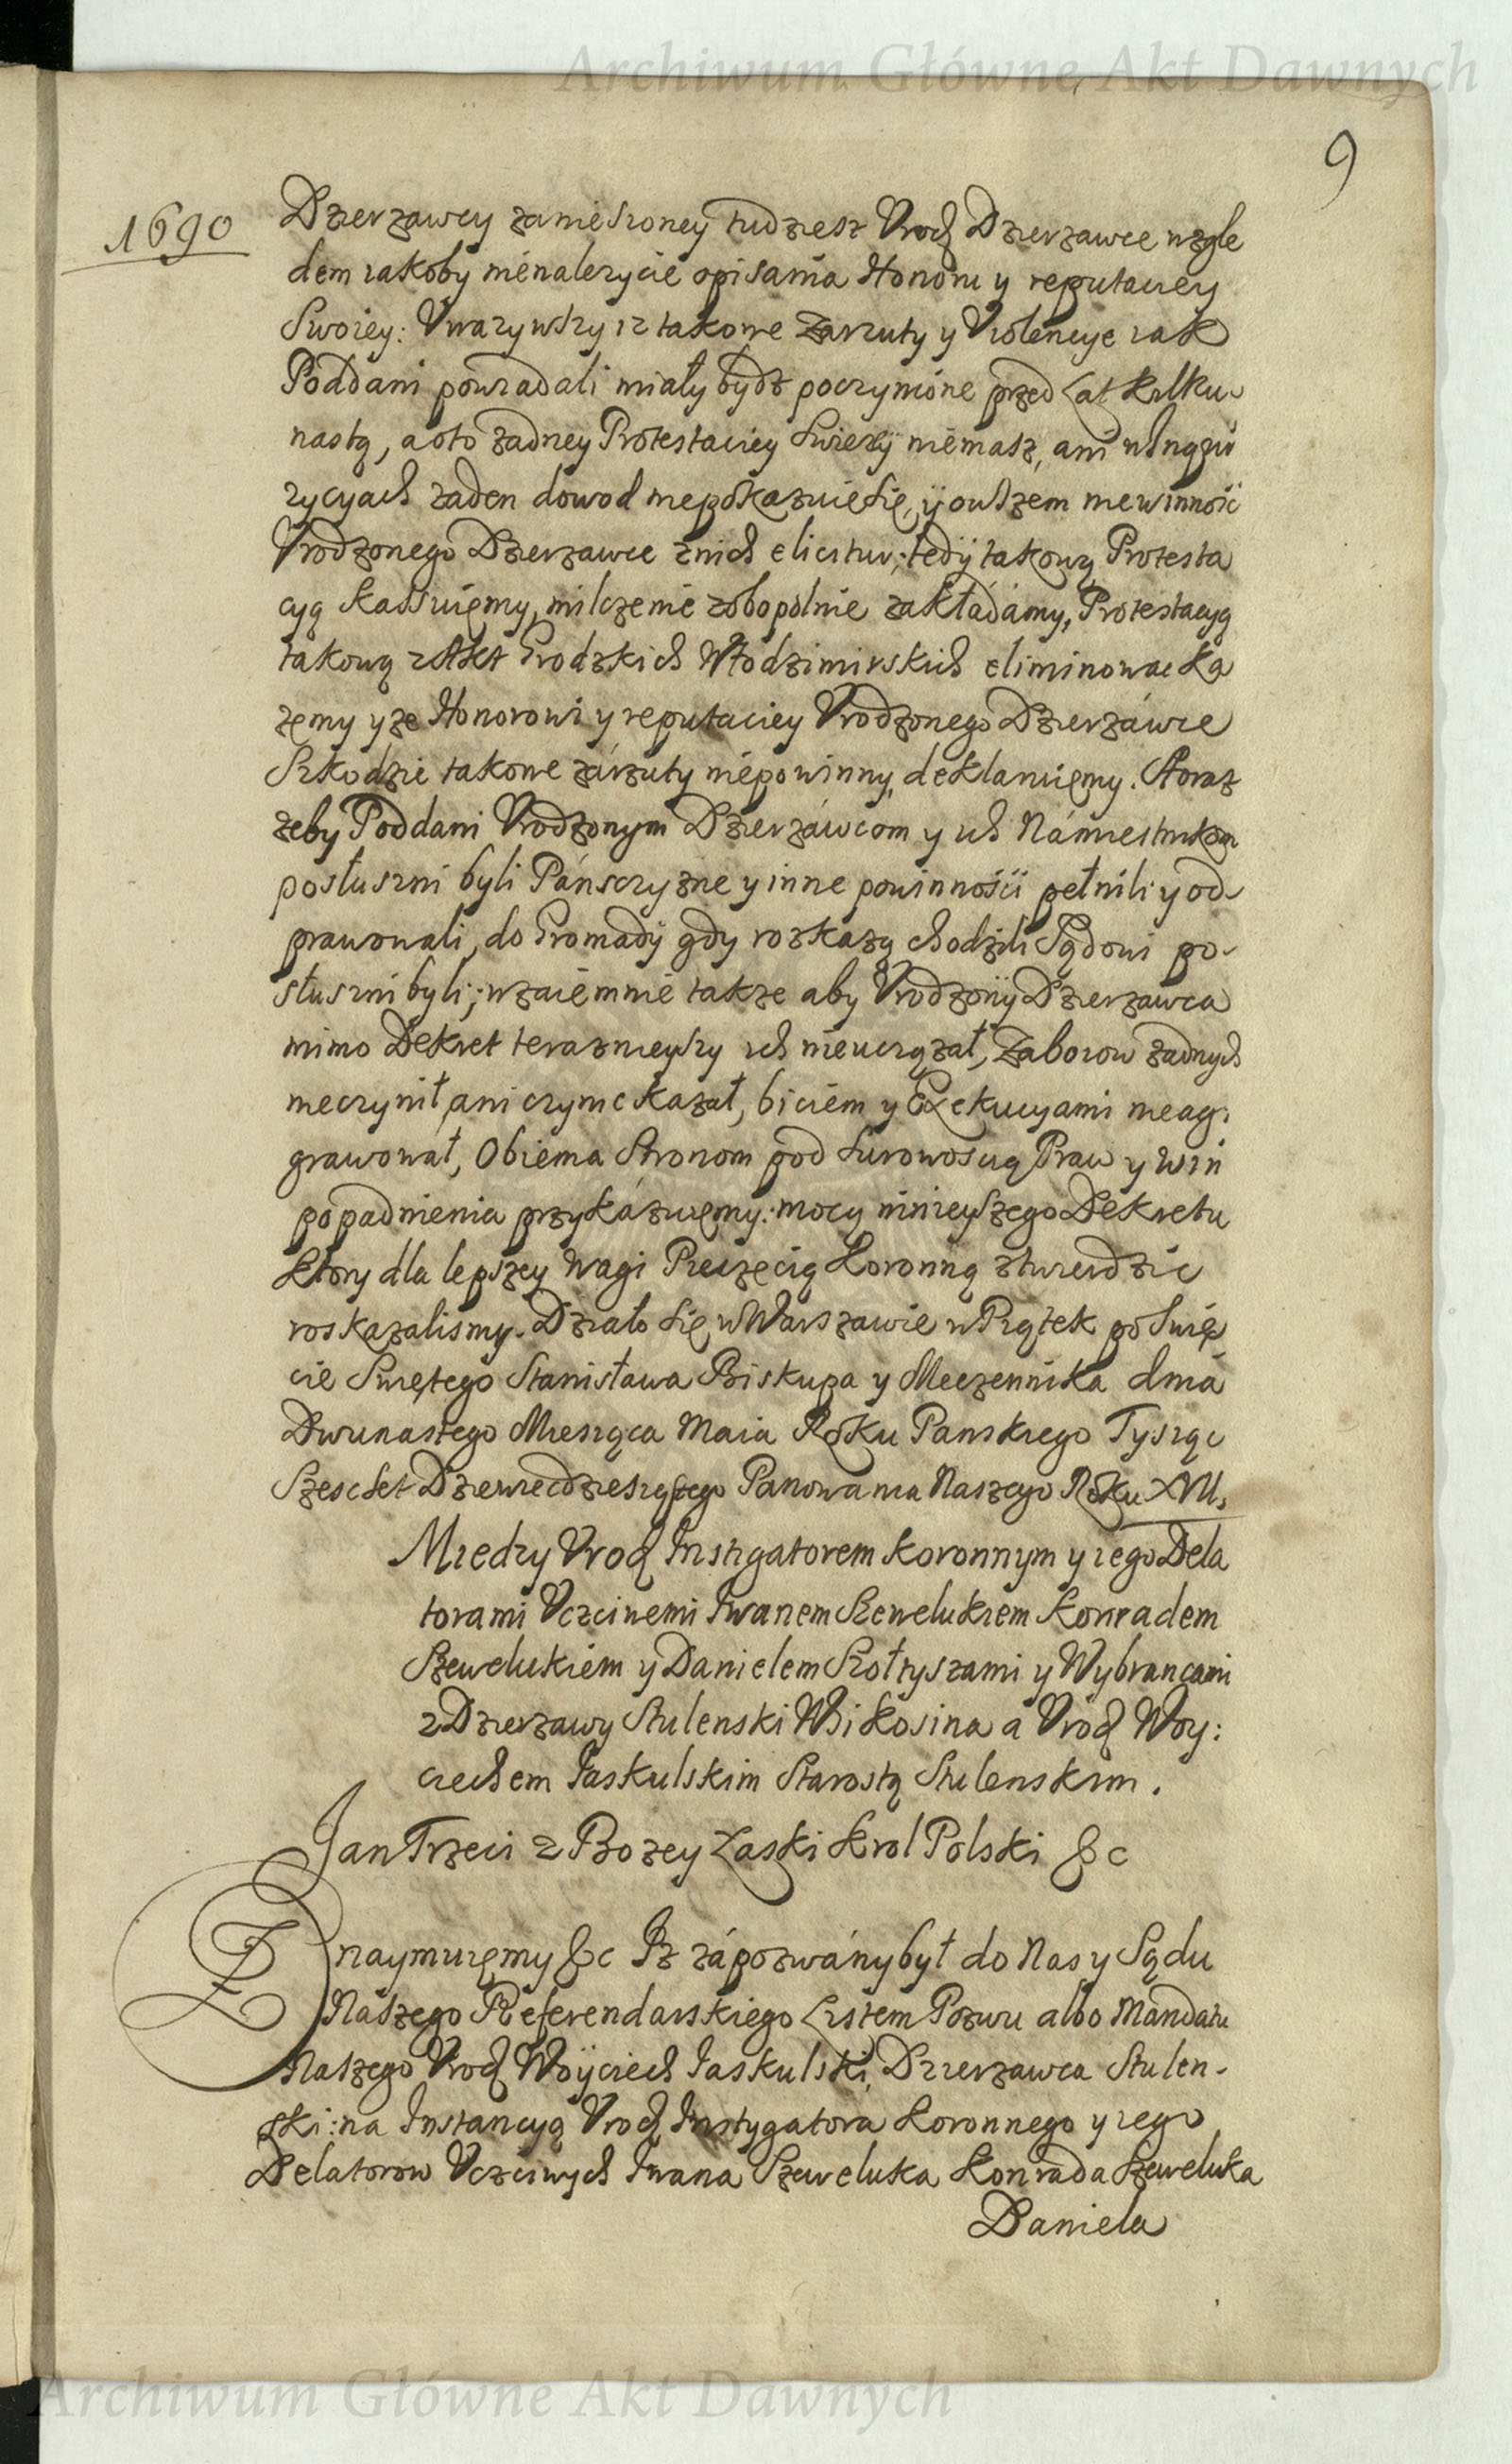 Archiwum Główne Akt Dawnych
9
1690
Dzierzawcy zaniesioney tudziesz Vrodz Dzierzawce wzglę
dem iakoby nienalezycie opisania Honoru y reputaciey
Swoiey: Vwazywszy iz takowe Zarzuty y Violencye iak
Poddani powiadali miały bydz poczynione przed Lat kilku
nastą, a oto zadney Protestaciey swiezÿ niemasz, ani w Inqzui
zycyach zaden dowod niepokazuie się, ÿ owszem niewinność
Vrodzonego Dzierzawce z nich elicitur, tedÿ takową Protesta
cyą kassuięmy, milczenie zobopolnie zakładamy, Protestacyą
takową z Akt Grodzkich Włodzimirskich eliminowac ka
zemy y ze Honorowi y reputaciey Vrodzonego Dzierzáwce
Szkodzic takowe zárzuty niepowinny, deklaruięmy. A oraz
zeby Poddani Vrodzonym Dzierzáwcom y ich Námiestnikom
posłuszni byli Pánsczyzne y inne powinnośći pełnili y od
prawowali, do Gromadÿ gdy rozkazą chodzili Sądowi po
słuszni byli; wzaiemnie takze aby Vrodzonÿ Dzierzawca
mimo Dekret terazniejszy ich nieuciązał, Zaborow zadnych
nieczynił, ani czynic kazał, biciem y Exekucyami nieag:
grawował, Obiema Stronom pod surowoscią Praw y Win
popadnienia przykázuięmy: mocą ninieyszego Dekretu
ktory dla lepszey wagi Pieczęcią Koronną ztwierdzic
roskazalismy. Działo się w Warszawie w Piątek po Swię
cie Swiętego Stanisława Biskupa y Męczennika dnia
Dwunastego Miesiąca Maia Roku Panskiego Tysiąc
Szescset Dziewiedziesiątego Panowania Naszego Roku XVI.
Miedzy Vrodz Instigatorem Koronnym y iego Dela
torami Vczciwemi Iwanem Szewelukiem Konradem
Szewelukiem y Danielem Szołtyszami y Wybrancami
z Dzierzawy Stulenski Wsi Kosina a Vrodz Woy:
ciechem Iaskulskim Starostą Stulenskim.
Jan Trzeci z Bozey Łaski Krol Polski &c
Znaymuięmy &c Iz zápozwány był do Nas y Sądu
Naszego Referendarskiego Listem Pozwu albo Mandatu
Naszego Vrodz Woÿciech Iaskulski, Dzierzawca Stulen-
ski: na Instancyą Vrodz Instygatora Koronnego y iego
Delatorow Vczciwych Iwana Szeweluka Konrada Szeweluka
Daniela
Archiwum Główne Akt Dawnych